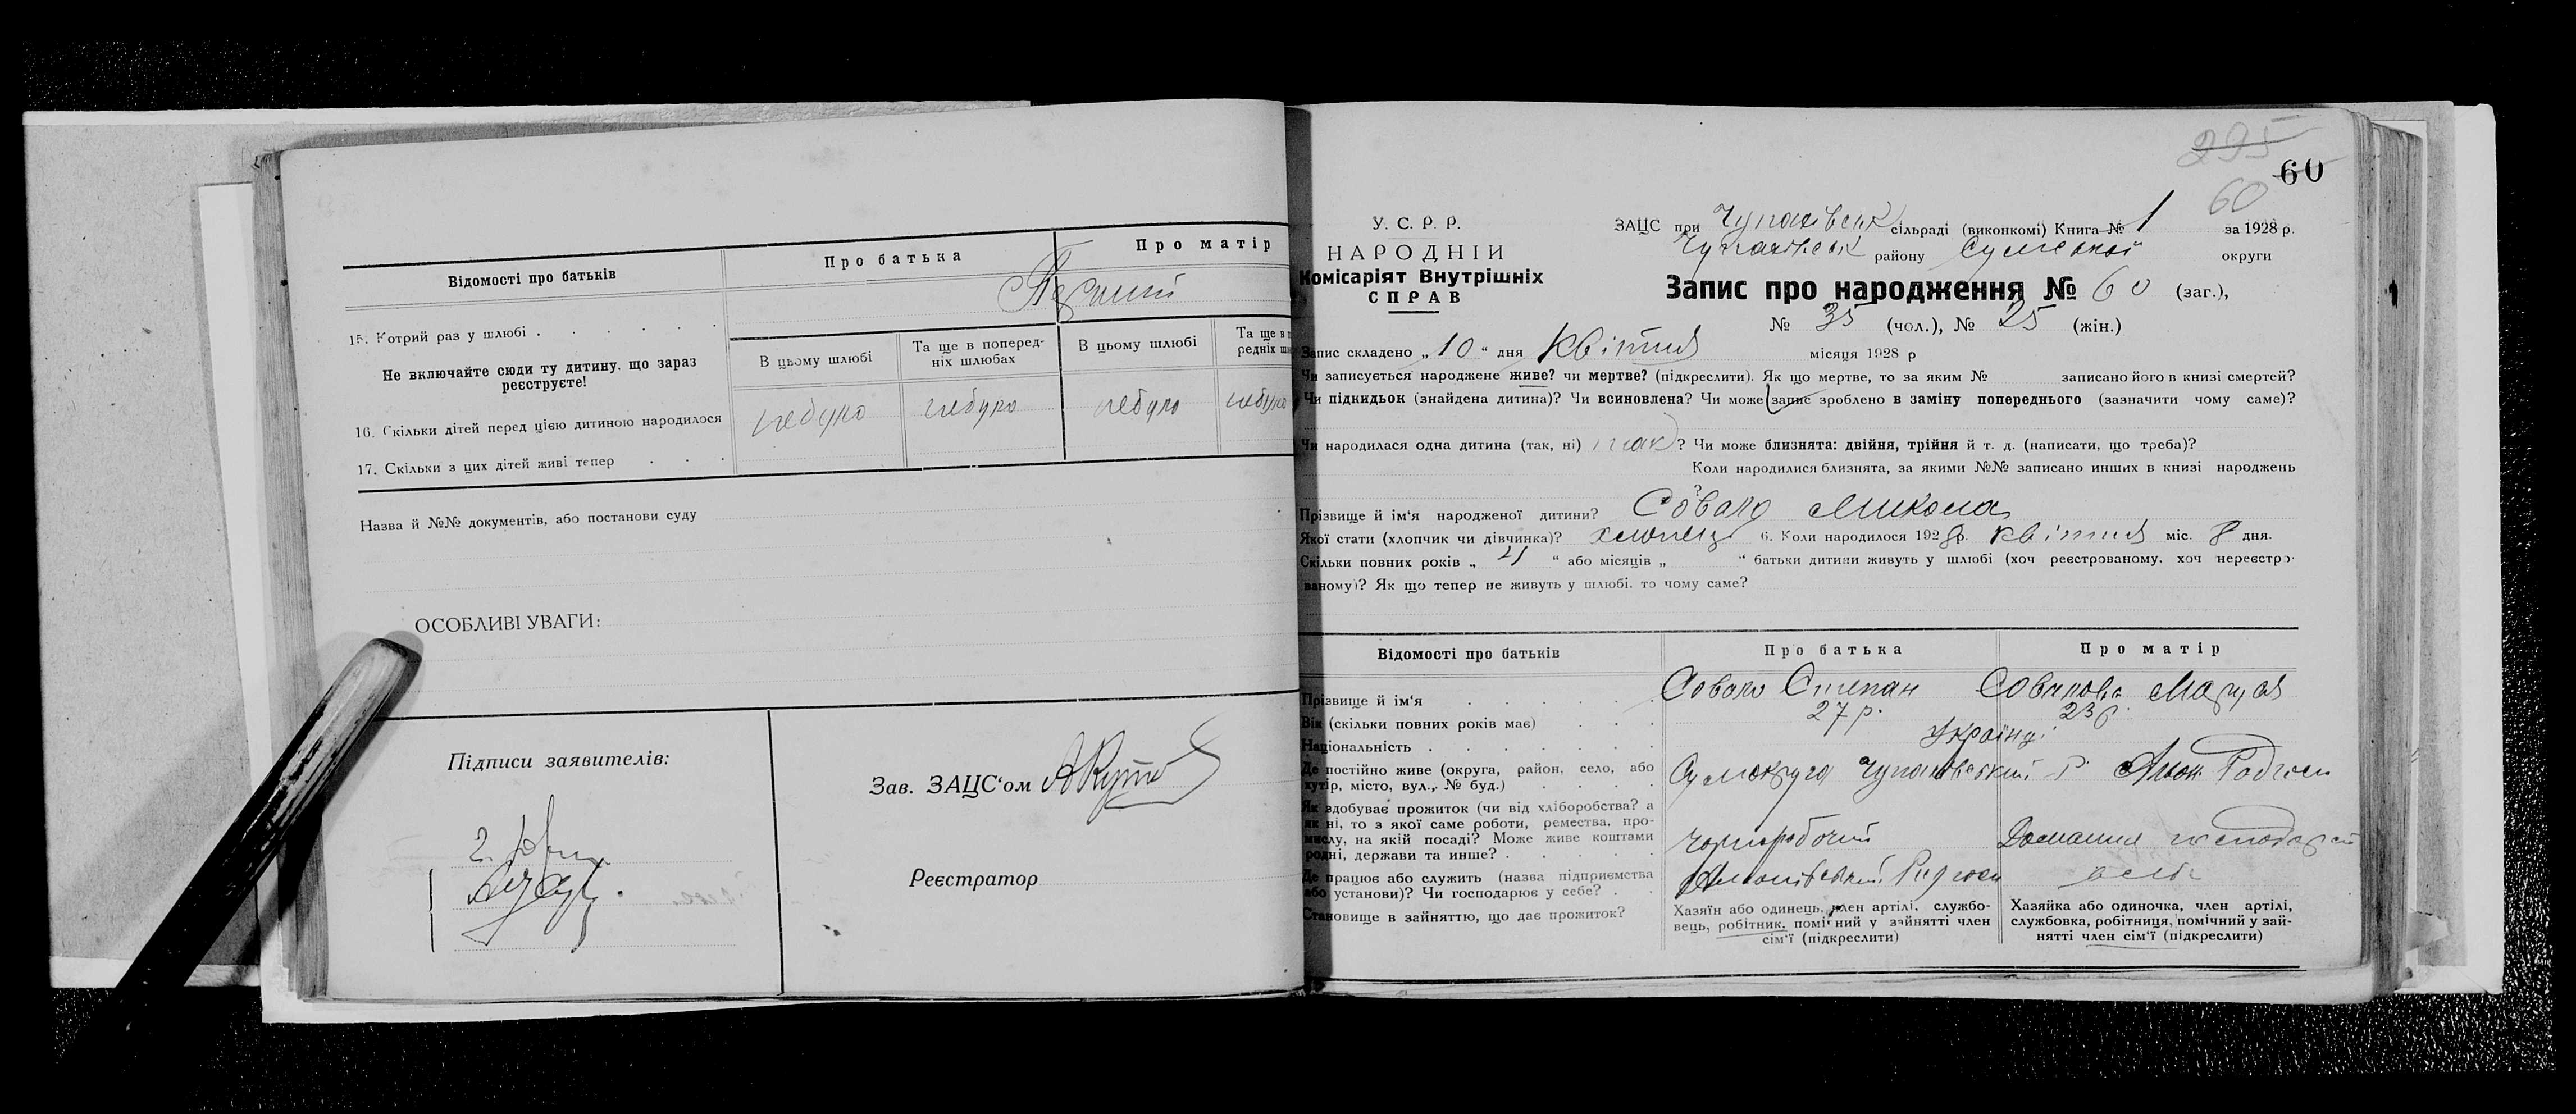 Відомості про батьків
Про батька
Про матір
15. Котрий раз у шлюбі
Перший
Не включайте сюди ту дитину, що зараз
реєструєте!
В цьому шлюбі
Та ще в поперед-
ніх шлюбах
В цьому шлюбі
Та ще в п
редніх шл
16. Скільки дітей перед цією дитиною народилося
небуло
небуло
небуло
небуло
17. Скільки з цих дітей живі тепер
Назва й №№ документів, або постанови суду
ОСОБЛИВІ УВАГИ:
Підписи заявителів:
Зав. ЗАЦС'ом
Реєстратор
295
60
60
У. С. Р. Р.
НАРОДНІЙ
Комісаріят Внутрішніх
СПРАВ
ЗАЦС при Чупахівськ сільраді (виконкомі) Книга № 1 за 1928 р.
Чупахівськ району Сумської округи
Запис про народження № 60 (заг.),
№ 35 (чол.), № 25 (жін.)
Запис складено „10“ дня Квітня місяця 1928 р
Чи записується народжене живе? чи мертве? (підкреслити). Як що мертве, то за яким № записано його в книзі смертей?
Чи підкидьок (знайдена дитина)? Чи всиновлена? Чи може запис зроблено в заміну попереднього (зазначити чому саме)?
Чи народилася одна дитина (так, ні) так? Чи може близнята: двійня, трійня й т. д. (написати, що треба)?
Коли народилися близнята, за якими №№ записано инших в книзі народжень
?
Прізвище й ім'я народженої дитини? Совало Микола
Якої стати (хлопчик чи дівчинка)? хлопець 6. Коли народилося 1928 р. квітня міс. 8 дня.
Скільки повних років „ 4 “ або місяців „ “ батьки дитини живуть у шлюбі (хоч реєстрованому, хоч нереєстро-
ваному)? Як що тепер не живуть у шлюбі, то чому саме?
Відомості про батьків
Про батька
Про матір
Прізвище й ім'я
Совало Степан
Совалова Маруся
Вік (скільки повних років має)
27 р.
23 р.
Національність
Українці
Де постійно живе (округа, район, село, або
хутір, місто, вул., № буд.)
Сумокруга Чупахівський Р.
Радгосп
Як здобуває прожиток (чи від хліборобства? а
як ні, то з якої саме роботи, ремества, про-
мислу, на якій посаді? Може живе коштами
родні, держави та инше?
Чорноробочий
Домашня господарст
Де працює або служить (назва підприємства
або установи)? Чи господарює у себе?
Радгосп
Становище в зайняттю, що дає прожиток?
Хазяїн або одинець, член артілі, службо-
вець, робітник, помічний у зайнятті член
сім'ї (підкреслити)
Хазяйка або одиночка, член артілі,
службовка, робітниця, помічний у зай-
нятті член сім'ї (підкреслити)